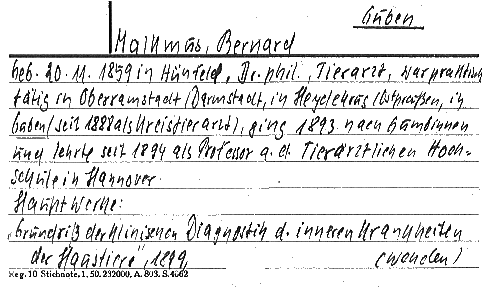 Guben
Malkmus, Bernard
geb. 20. 11. 1859 in Hünfeld, Dr. phil., Tierarzt, war praktisch
tätig in Oberramstadt/Darmstadt, in Heydekrug/Ostpreußen, in
Guben (seit 1888 als Kreistierarzt), ging 1893 nach Gumbinnen
und lehrte seit 1894 als Professor a. d. Tierärztlichen Hoch-
schule in Hannover.
Hauptwerke:
„Grundriß der klinischen Diagnostik d. inneren Krankheiten
der Haustiere", 1899,
(wenden)
Reg. 10 Stichnote, 1, 50. 232000, A. 803. S. 4662